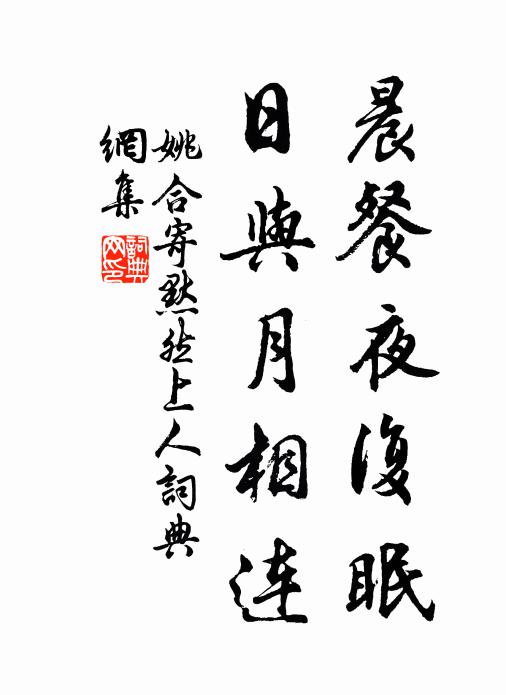 晨餐夜復眠
日與月相连
姚合寄默然上人詞典
網集
詞典网印